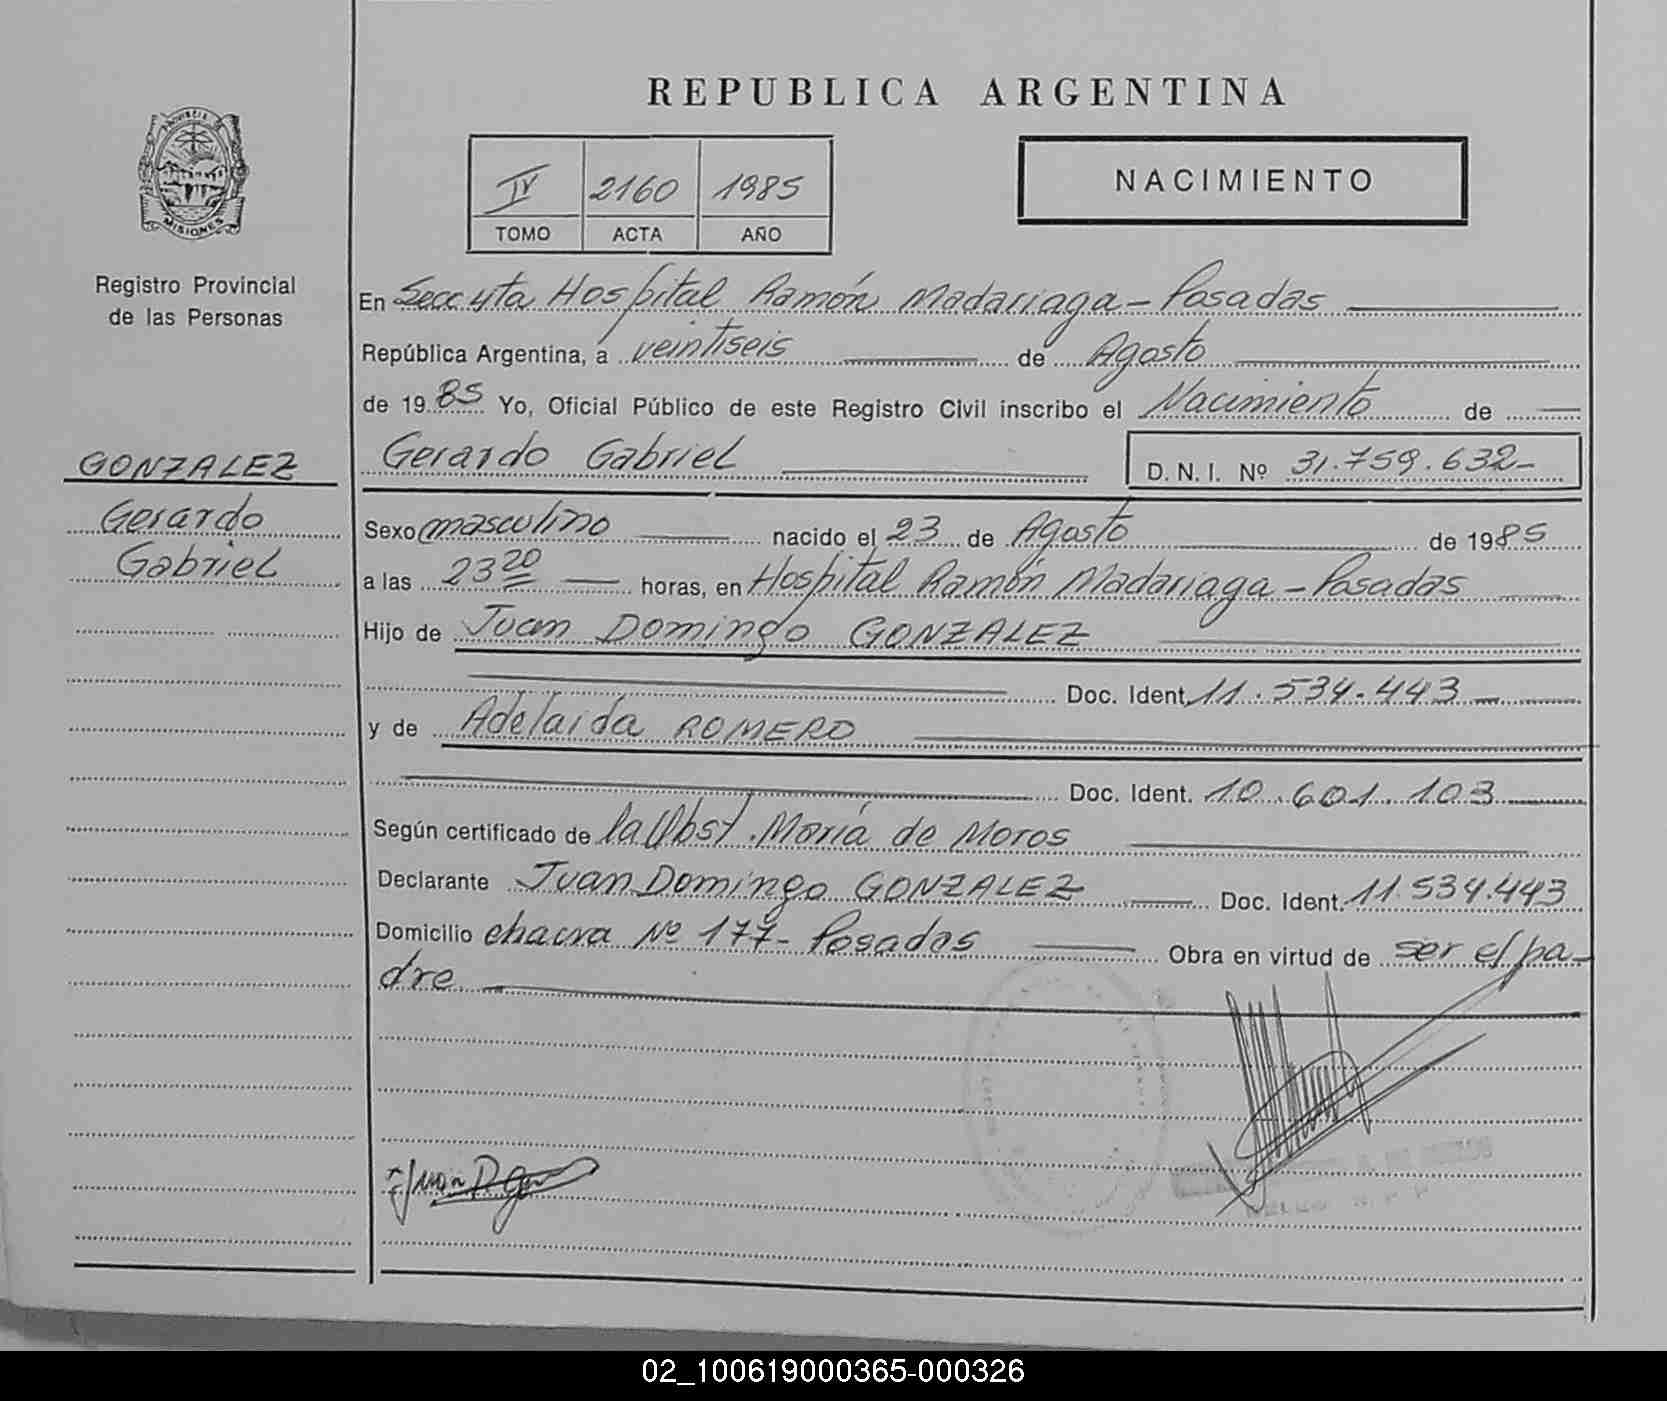 REPUBLICA ARGENTINA
PROVINCIA DE
MISIONES
IV 2160 1985
TOMO ACTA AÑO
NACIMIENTO
Registro Provincial
de las Personas
En Secc yta Hospital Ramón Madariaga - Posadas
República Argentina, a veintiseis de Agosto
de 1985 Yo, Oficial Público de este Registro Civil inscribo el Nacimiento de
GONZALEZ
Gerardo Gabriel D. N. I. Nº 31.759.632-
Gerardo
Gabriel
Sexo masculino nacido el 23 de Agosto de 1985
a las 23 20 horas, en Hospital Ramón Madariaga - Posadas
Hijo de Juan Domingo GONZALEZ
Doc. Ident. 11.534.443
y de Adelaida ROMERO
Doc. Ident. 10.601.103
Según certificado de la Obst. María de Moros
Declarante Juan Domingo GONZALEZ Doc. Ident. 11.534.443
Domicilio chacra Nº 177- Posadas Obra en virtud de ser el pa-
dre
02_100619000365-000326